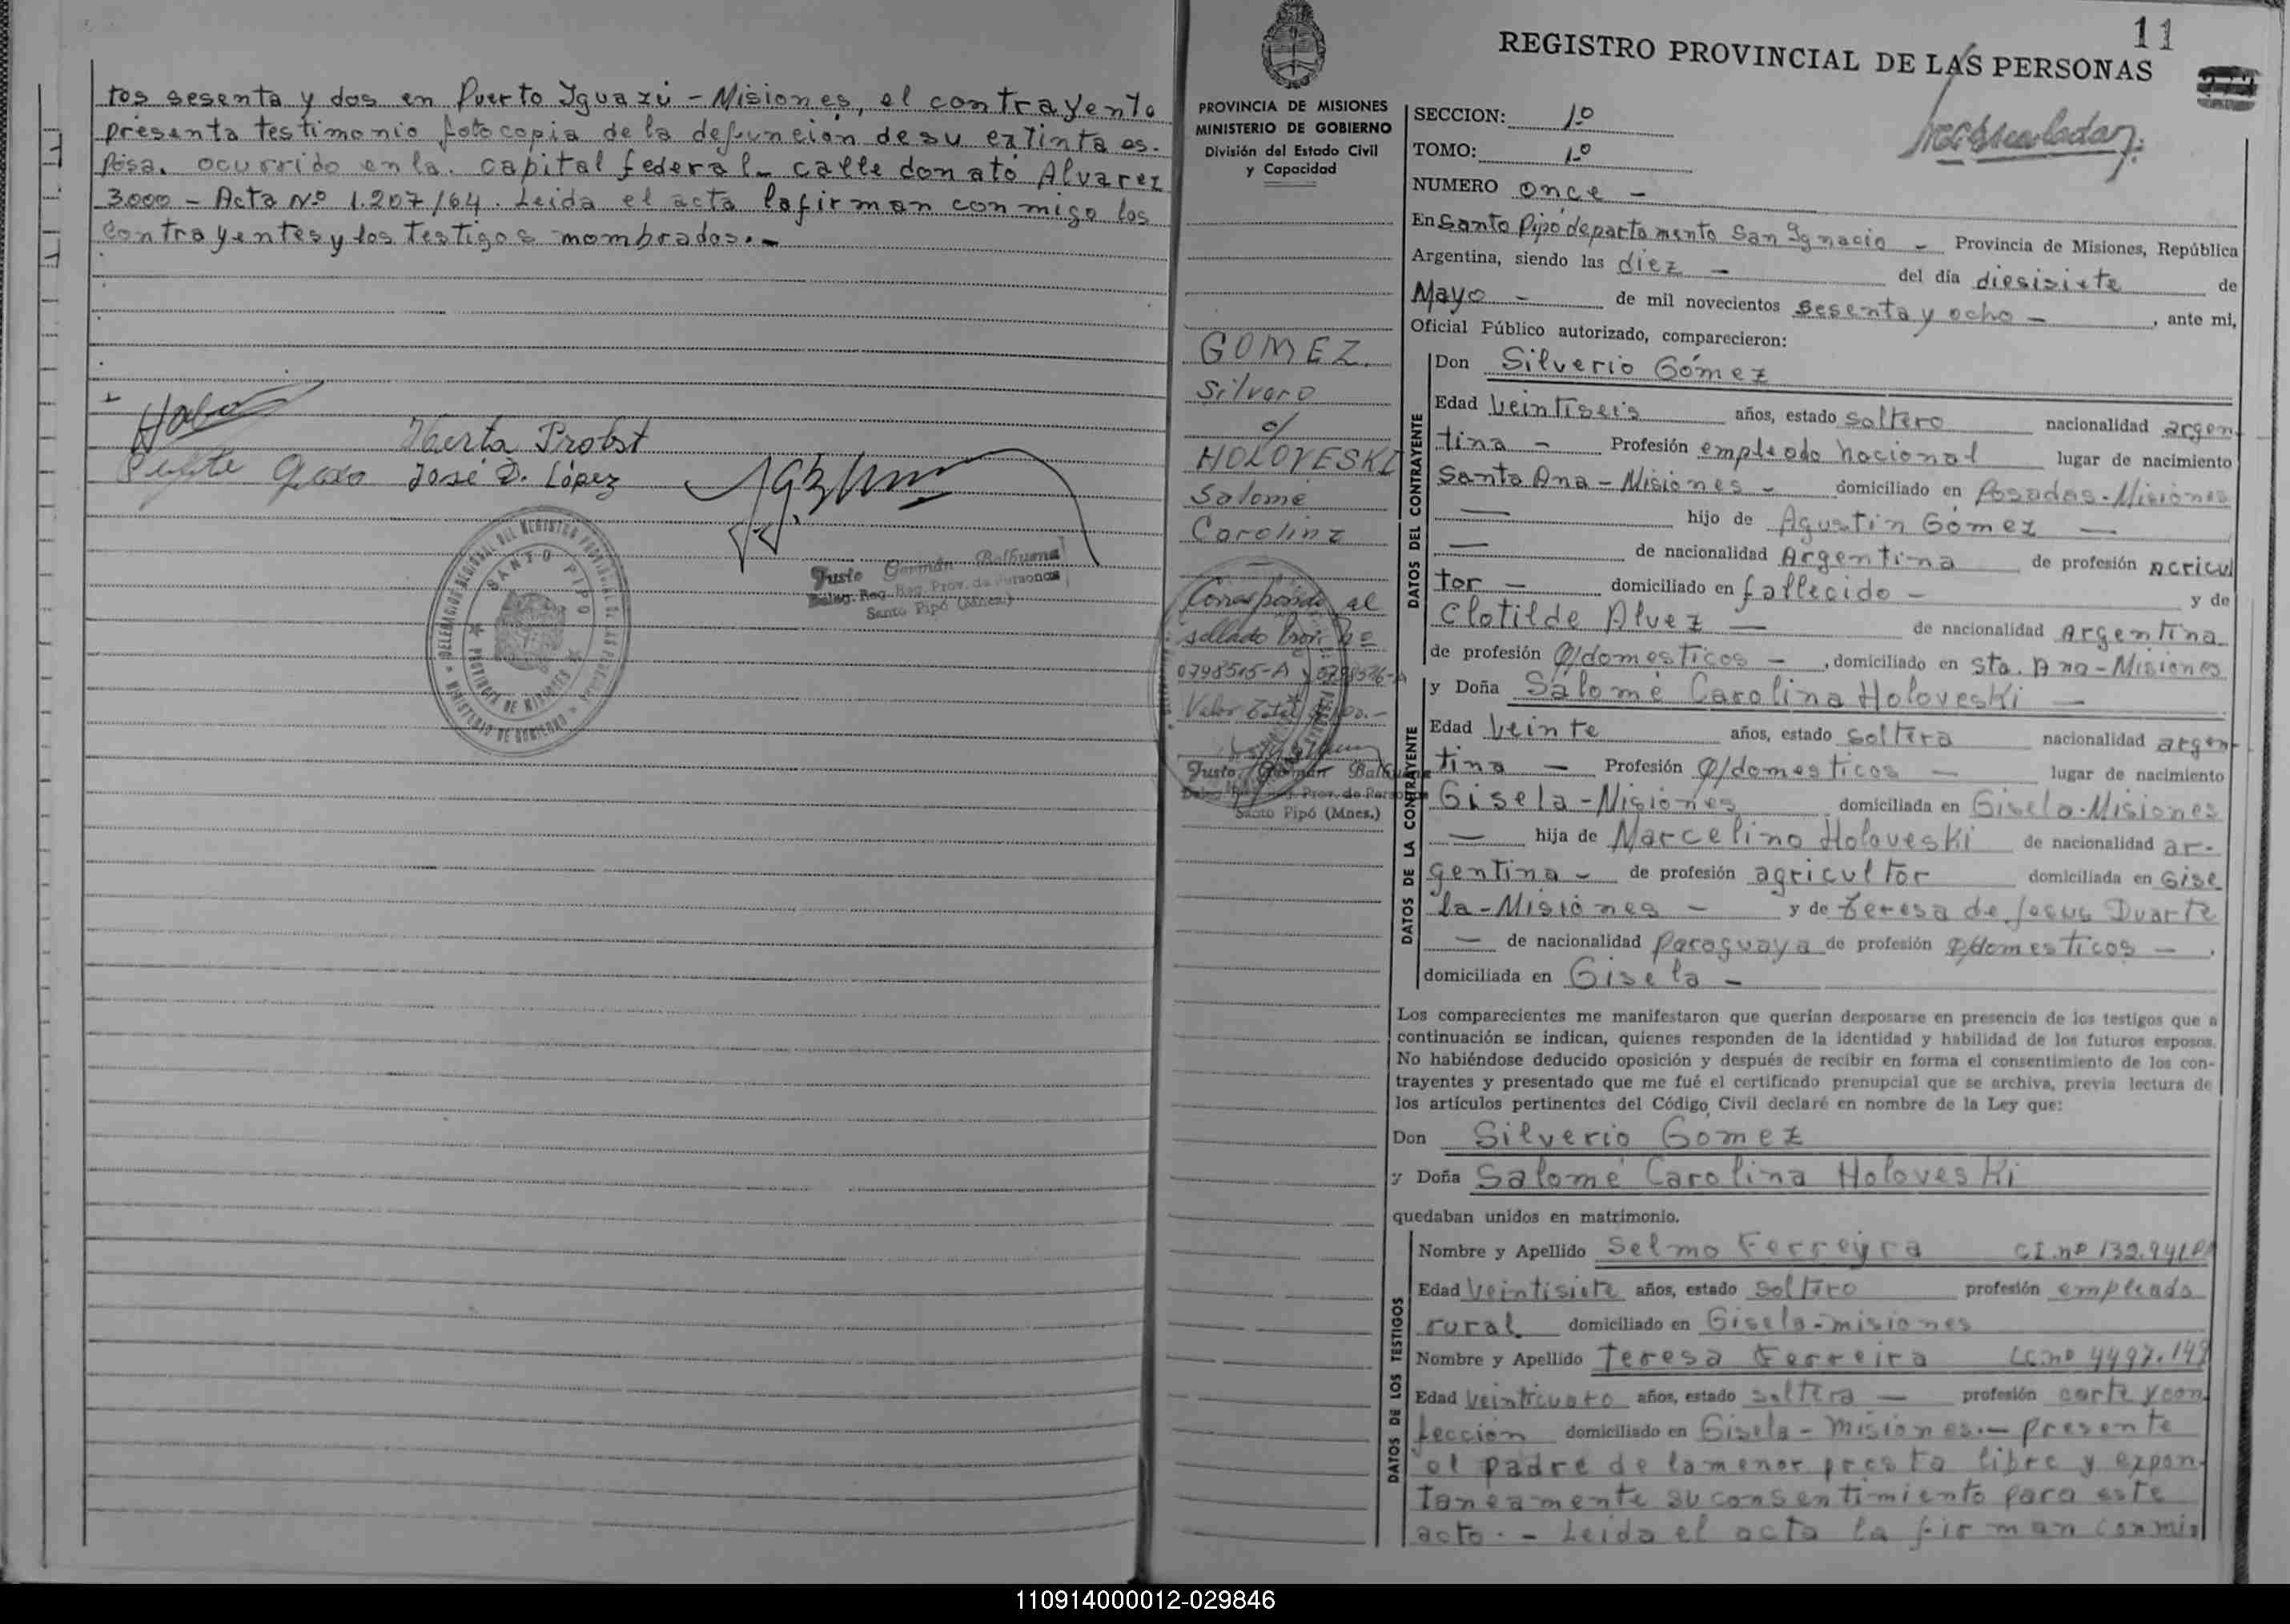 tos sesenta y dos en Puerto Iguazú - Misiones, el contrayente
presenta testimonio fotocopia de la defuncion de su extinta es-
posa. ocurrido en la capital federal - calle donato Alvarez
3000 - Acta Nº 1.207/64. Leida el acta la firman con migo los
Contrayentes y los testigos nombrados. -
Herta Probst
José D. López
Justo Germán Balbuena
Deleg. Reg. Reg. Prov. de Personas
Santo Pipó (Mnes.)
SANTO PIPO
PROVINCIA DE MISIONES
MINISTERIO DE GOBIERNO
11
REGISTRO PROVINCIAL DE LAS PERSONAS
PROVINCIA DE MISIONES
MINISTERIO DE GOBIERNO
División del Estado Civil
y Capacidad
GOMEZ
Silvero
c/
HOLOVESKI
Salomé
Carolina
Corresponde al
sellado
0798515-A y 0798516-A
Valor Total
Justo Germán Balbuena
Santo Pipó (Mnes.)
SECCION: 1º
TOMO: 1º
NUMERO Once -
En Santo Pipó departamento San Ignacio - Provincia de Misiones, República
Argentina, siendo las diez - del día diesisiete de
Mayo - de mil novecientos sesenta y ocho -, ante mi,
Oficial Público autorizado, comparecieron:
DATOS DEL CONTRAYENTE
Don Silverio Gómez
Edad Veintiseis años, estado soltero nacionalidad argen-
tina - Profesión empleado Nacional lugar de nacimiento
Santa Ana - Misiones - domiciliado en Posadas - Misiones
— hijo de Agustin Gómez —
— de nacionalidad Argentina de profesión Acricul
tor - domiciliado en fallecido - y de
Clotilde Alvez — de nacionalidad Argentina
de profesión Q/domesticos -, domiciliado en Sta. Ana - Misiones
DATOS DE LA CONTRAYENTE
y Doña Salomé Carolina Holoveski —
Edad Veinte años, estado soltera nacionalidad argen-
tina — Profesión Q/domesticos — lugar de nacimiento
Gisela - Misiones domiciliada en Gisela - Misiones
— hija de Marcelino Holoveski de nacionalidad ar-
gentina - de profesión agricultor domiciliada en Gise
la - Misiones - y de Teresa de Jesus Duarte
— de nacionalidad Paraguaya de profesión Q/domesticos —.
domiciliada en Gisela -
Los comparecientes me manifestaron que querían desposarse en presencia de los testigos que a
continuación se indican, quienes responden de la identidad y habilidad de los futuros esposos.
No habiéndose deducido oposición y después de recibir en forma el consentimiento de los con-
trayentes y presentado que me fué el certificado prenupcial que se archiva, previa lectura de
los artículos pertinentes del Código Civil declaré en nombre de la Ley que:
Don Silverio Gomez
y Doña Salomé Carolina Holoveski
quedaban unidos en matrimonio.
DATOS DE LOS TESTIGOS
Nombre y Apellido Selmo Ferreyra CI. nº 132.941
Edad Veintisiete años, estado soltero profesión empleado
rural domiciliado en Gisela - misiones
Nombre y Apellido Teresa Ferreira LC. nº 4497.149
Edad Veinticuato años, estado soltera — profesión corte y con
feccion domiciliado en Gisela - Misiones. - presente
el padre de la menor presta libre y expon-
taneamente su consentimiento para este
acto. - Leida el acta la firman con mi
110914000012-029846